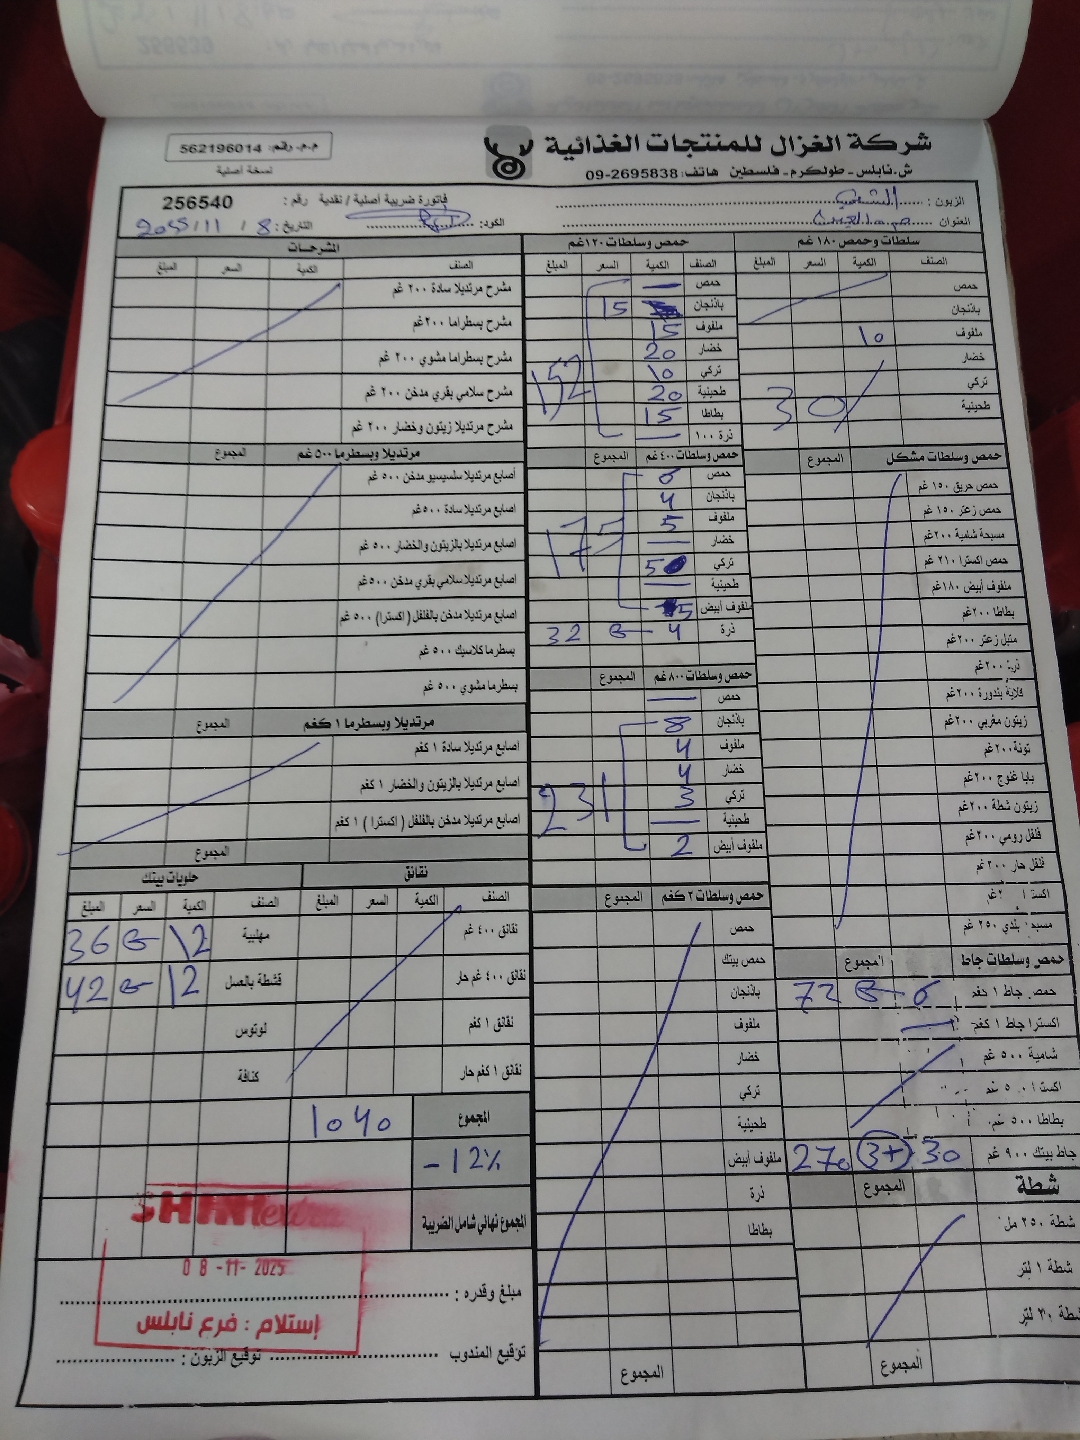 شركة الغزال للمنتجات الغذائية
ش.نابلس - طولكرم - فلسطين هاتف: 2695838-09
م.م. رقم: 562196014
نسخة أصلية
الزبون :
العنوان
فاتورة ضريبية أصلية / نقدية رقم : 256540
الكود:
التاريخ: 8 / 11 / 2025
سلطات وحمص ١٨٠ غم
الصنف الكمية السعر المبلغ
حمص
باذنجان
ملفوف 10
خضار
تركي
طحينية
30
حمص وسلطات مشكل المجموع
حمص حريق ١٥٠ غم
حمص زعتر ١٥٠ غم
مسبحة شامية ٢٠٠غم
حمص اكسترا ٢١٠ غم
ملفوف أبيض ١٨٠غم
بطاطا ٢٠٠غم
متبل زعتر ٢٠٠غم
ذرة ٢٠٠غم
قلاية بندورة ٢٠٠غم
زيتون مغربي ٢٠٠غم
تونة ٢٠٠غم
بابا غنوج ٢٠٠غم
زيتون شطة ٢٠٠غم
فلفل رومي ٢٠٠غم
فلفل حار ٢٠٠غم
بلدي ٢٥٠ غم
حمص وسلطات جاط المجموع
حمص جاط ١ كغم 6 72
اكسترا جاط ١ كغم —
شامية ٥٠٠ غم
بطاطا ٥٠٠ غم
جاط بيتك ٩٠٠ غم 30 +3 270
شطة المجموع
شطة ٢٥٠ مل
شطة ١ لتر
شطة ٣٠ لتر
المجموع
حمص وسلطات ١٢٠غم
الصنف الكمية السعر المبلغ
حمص —
باذنجان 15
ملفوف 15
خضار 20
تركي 10
طحينية 20
بطاطا 15
ذرة ١٠٠ —
152
حمص وسلطات ٤٠٠غم المجموع
حمص 6
باذنجان 4
ملفوف 5
خضار —
تركي 5
طحينية —
ملفوف أبيض 5
175
ذرة 4 8 32
حمص وسلطات ٨٠٠غم المجموع
حمص —
باذنجان 8
ملفوف 4
خضار 4
تركي 3
طحينية —
ملفوف أبيض 2
231
حمص وسلطات ٢ كغم المجموع
حمص
حمص بيتك
باذنجان
ملفوف
خضار
تركي
طحينية
ملفوف أبيض
ذرة
بطاطا
المجموع
المشرحات
الصنف الكمية السعر المبلغ
مشرح مرتديلا سادة ٢٠٠ غم
مشرح بسطراما ٢٠٠غم
مشرح بسطراما مشوي ٢٠٠ غم
مشرح سلامي بقري مدخن ٢٠٠ غم
مشرح مرتديلا زيتون وخضار ٢٠٠ غم
مرتديلا وبسطرما ٥٠٠ غم المجموع
أصابع مرتديلا سلسيسيو مدخن ٥٠٠ غم
اصابع مرتديلا سادة ٥٠٠غم
اصابع مرتديلا بالزيتون والخضار ٥٠٠ غم
اصابع مرتديلا سلامي بقري مدخن ٥٠٠غم
اصابع مرتديلا مدخن بالفلفل (اكسترا) ٥٠٠ غم
بسطرما كلاسيك ٥٠٠ غم
بسطرما مشوي ٥٠٠ غم
مرتديلا وبسطرما ١ كغم المجموع
اصابع مرتديلا سادة ١ كغم
اصابع مرتديلا بالزيتون والخضار ١ كغم
اصابع مرتديلا مدخن بالفلفل (اكسترا) ١ كغم
المجموع
نقانق
الصنف الكمية السعر المبلغ
نقانق ٤٠٠ غم
نقانق ٤٠٠ غم حار
نقانق ١ كغم
نقانق ١ كغم حار
حلويات بيتك
الصنف الكمية السعر المبلغ
مهلبية 12 36
قشطة بالعسل 12 42
لوتوس
كنافة
المجموع 1040
- 12%
المجموع نهائي شامل الضريبة
08 -11- 2025
إستلام : فرع نابلس
مبلغ وقدره :
توقيع المندوب توقيع الزبون :